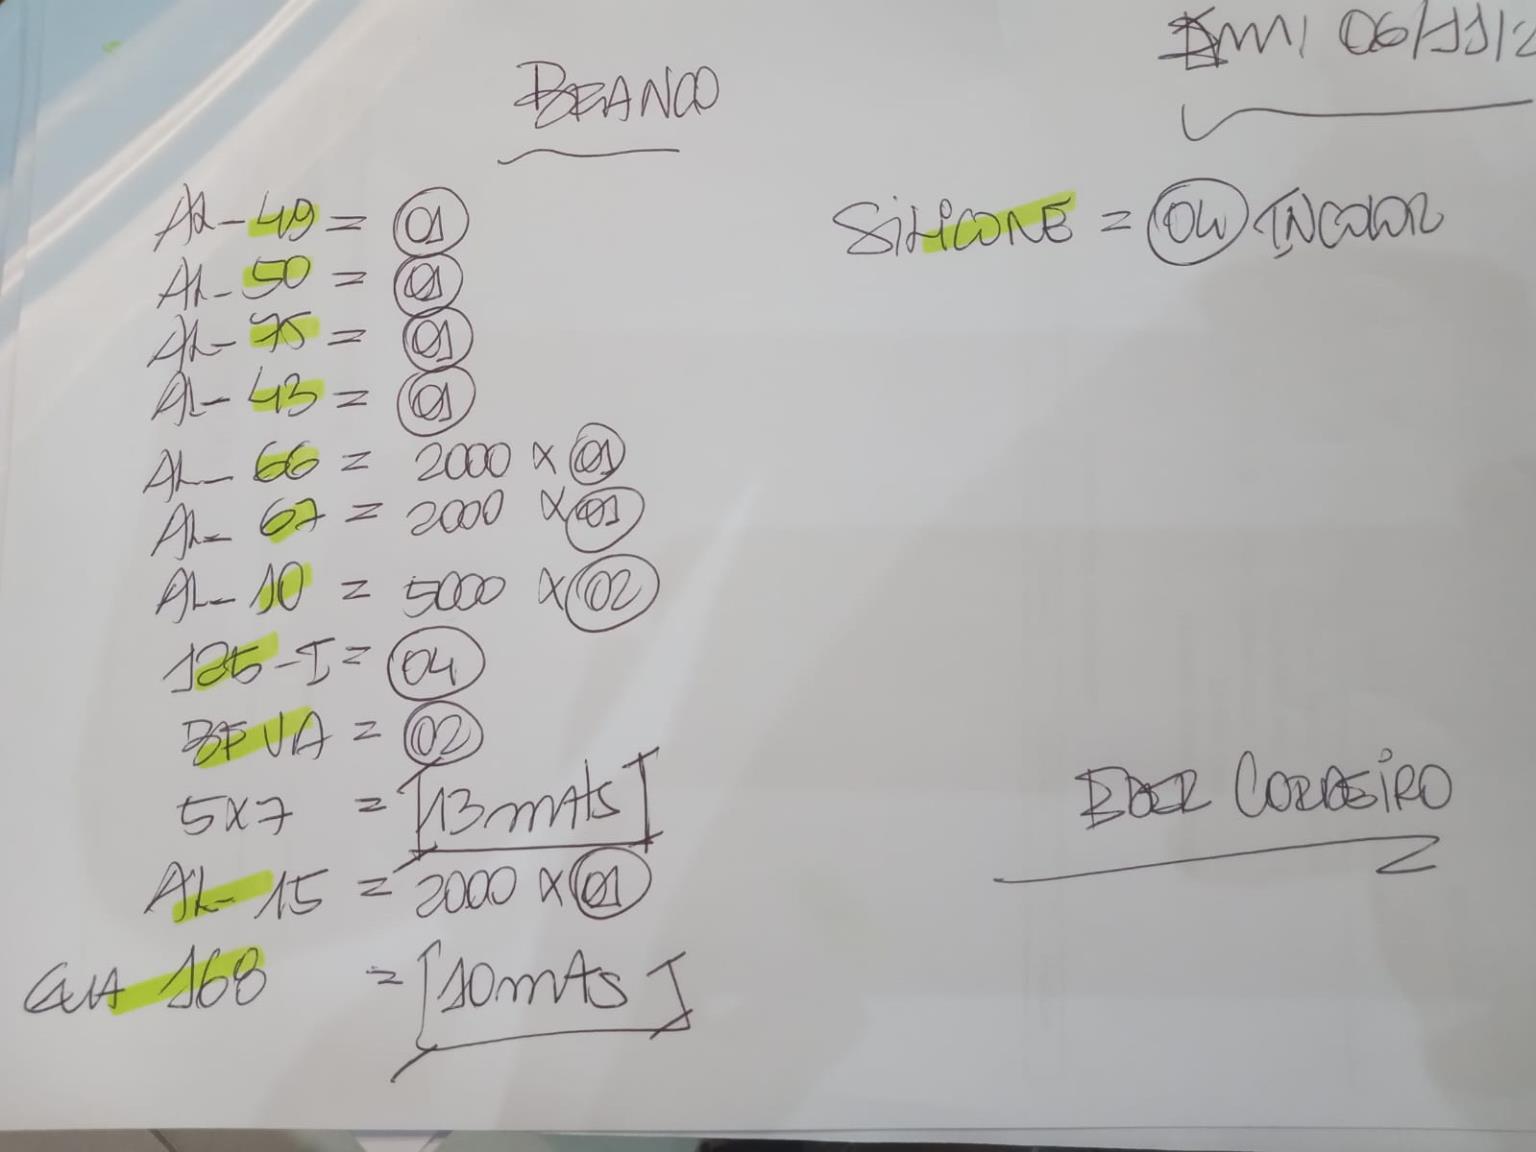 BRANCO
EMI 06/11/2
AL-49 = 01
SILICONE = 04 INCOLOR
AL-50 = 01
AL-75 = 01
AL-43 = 01
AL-66 = 2000 x 01
AL-67 = 2000 x 01
AL-10 = 5000 x 02
125-I = 04
BFVA = 02
5x7 = [13mts]
EDER CORDEIRO
AL-15 = 2000 x 01
GUA 168 = [10mts]